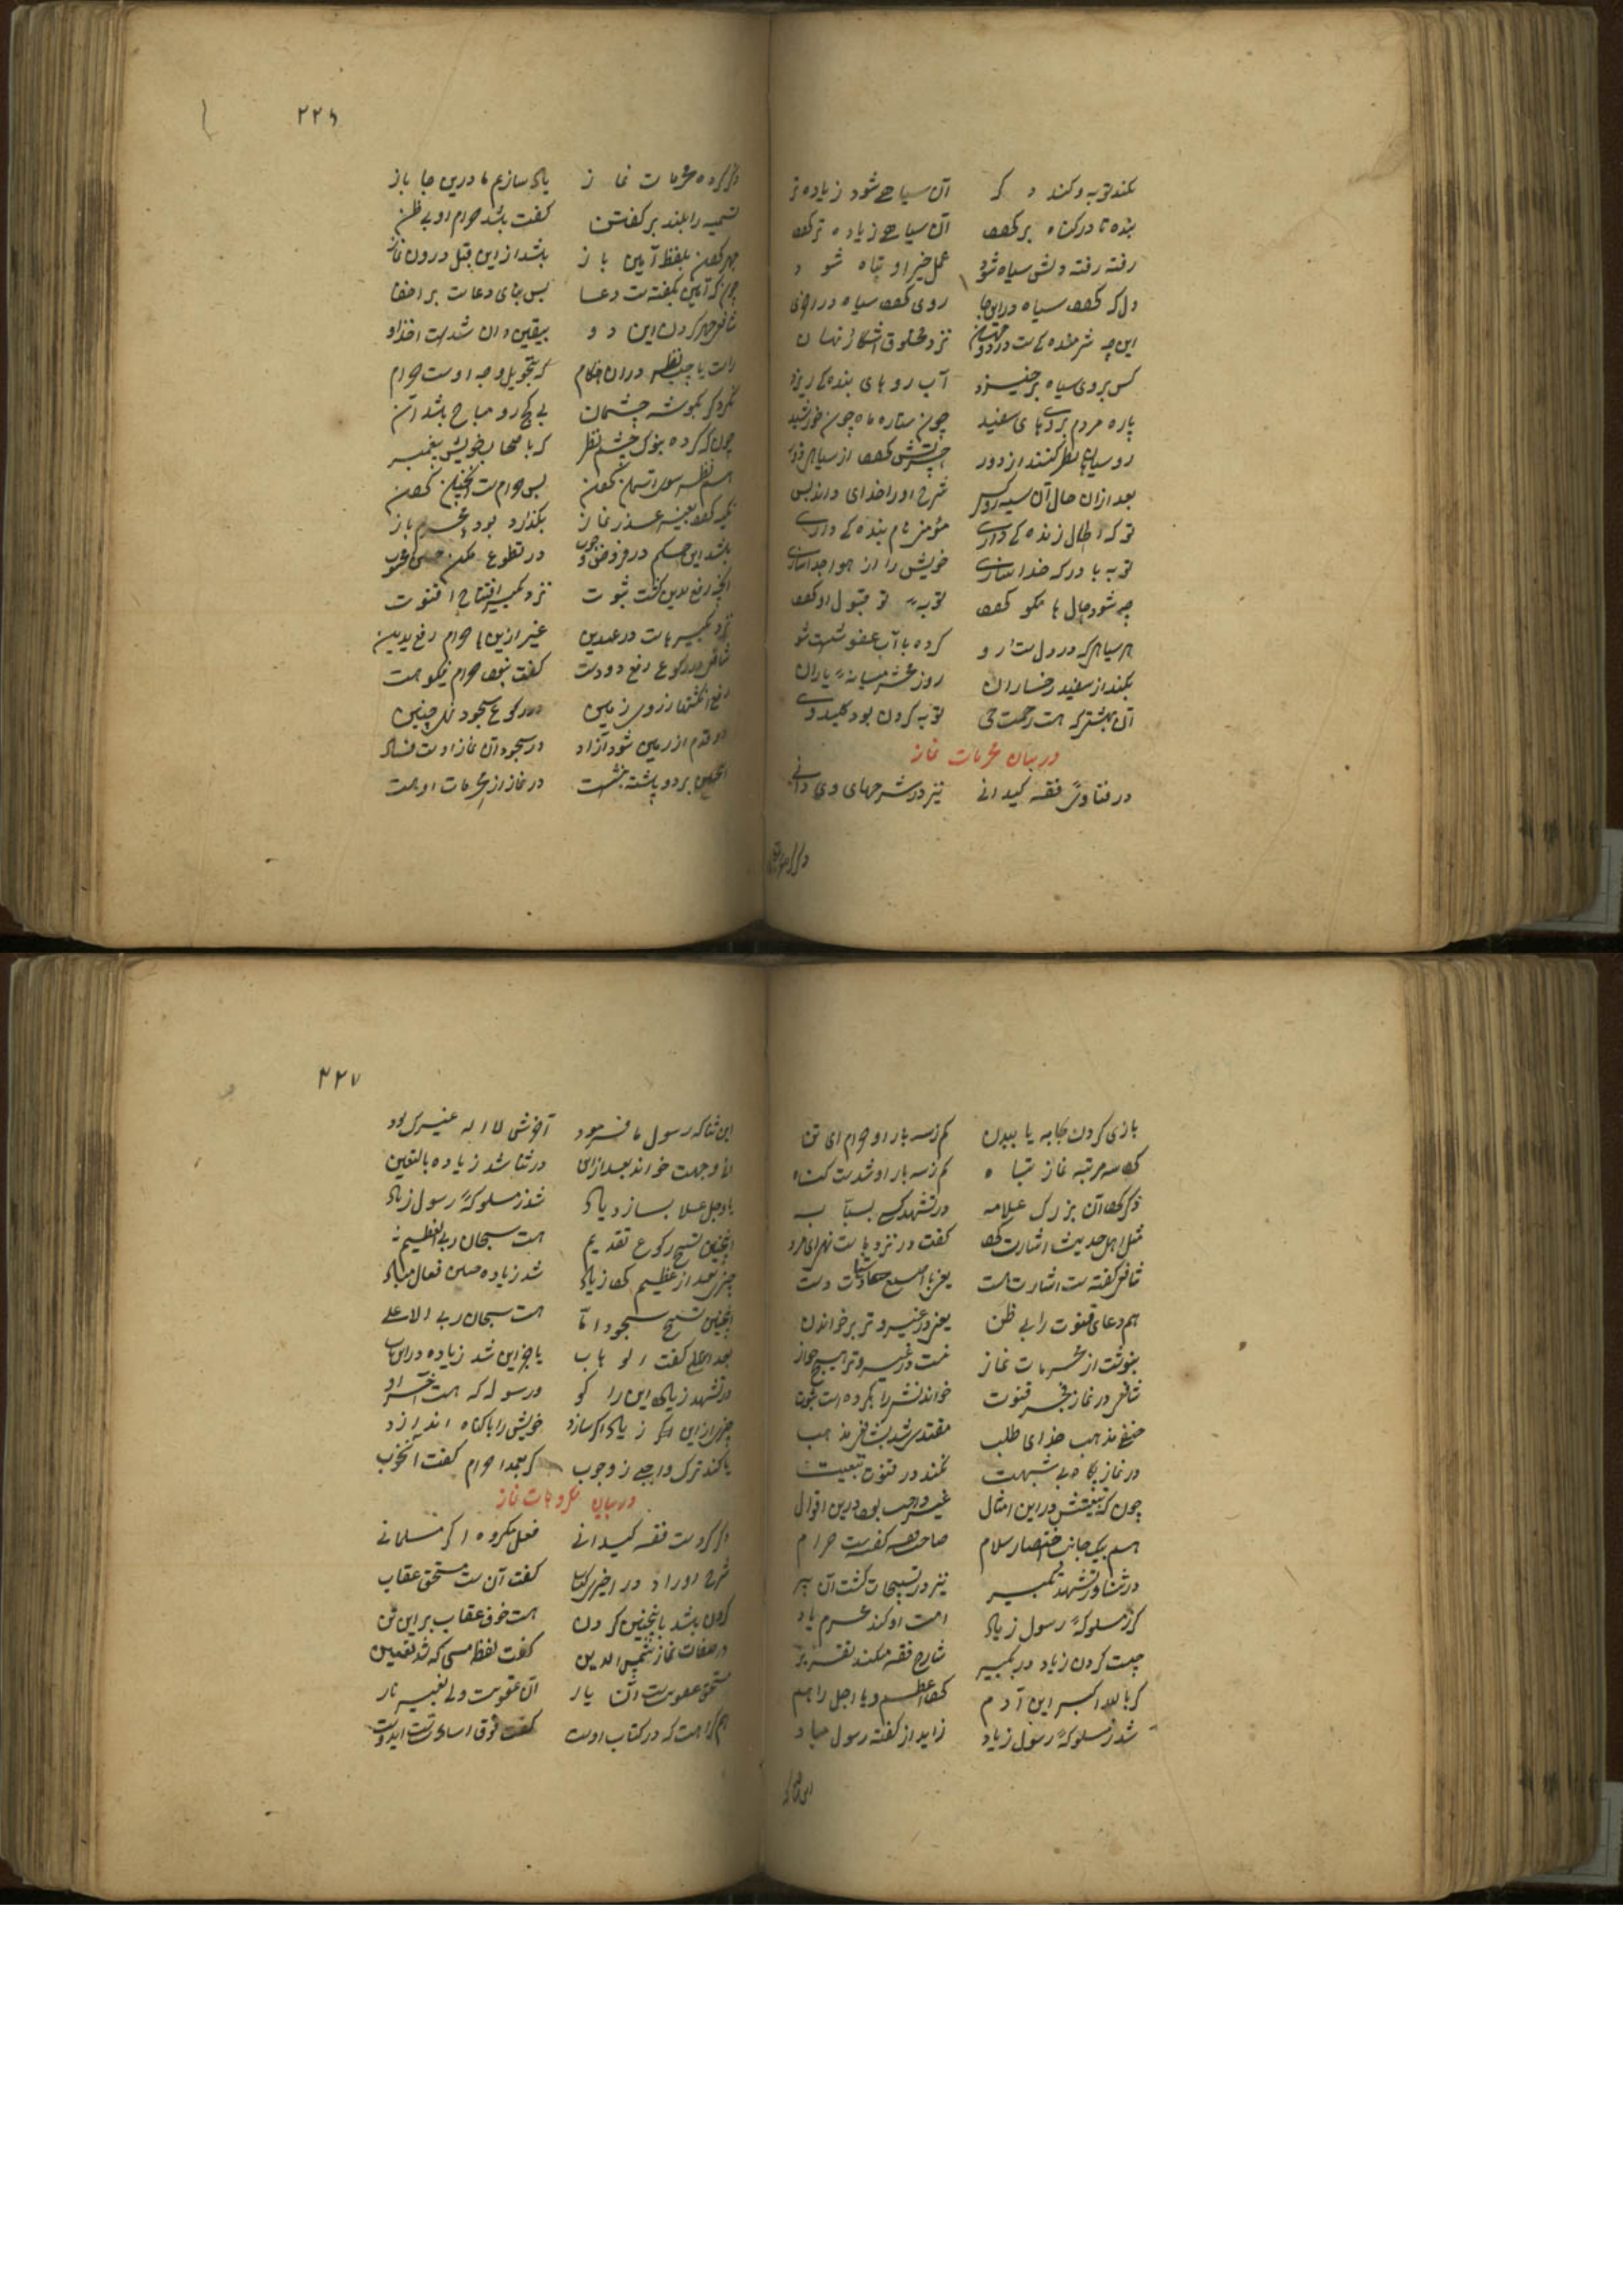 نکند توبه و کند د کر آن سیاهی شود زیاده تر
بنده تا در کناه بر کردد آن سیاهی زیاده تر کردد
رفته رفته دلش سیاه شود عمل خیر او تباه شود
دل که کردد سیاه در این جا روی کردد سیاه در
این چه شرمنده کی ست در نزد مخلوق آشکار نهان
کس بروی سیاه برخیزد آب روهای بنده کی ریزد
پاره مردم بروهای سفید چون ستاره ماه چون خورشید
رو سیاه نظر کنند از دور
بعد ازان حال آن سیه رو کس شرح او را خدای داند بس
تو که اطال زنده کی داری مؤمنی نام بنده کی داری
توبه با درکه خدا سازی خویش را از هوا جدا سازی
چه شود حال ما نکو کردد توبه تو قبول او کردد
هر سیاهی که در دل ست ار و کرده با آب عفو شست شو
بکند از سفید رخساران روز محشر میانه یاران
آن بهشتی که هست رحمت حی توبه کردن بود کلید وی
در بیان محرمات نماز
در فتاوی فقه کیدانی نیز در شرحهای وی دانی
۲۲۶
ذکر کرده محرمات نماز یاد سازیم ما درین جا باز
تسمیه را بلند بر کفتن کفت باشد حرام او بی ظن
جهر کفتن بلفظ آمین باز باشد از این قبل درون نماز
چون که آمین بکفته ست دعا پس بنای دعاست بر اخفا
شافعی جهر کردن این دو
راست یا چپ نظر در آن احکام که بتحویل وجه اوست حرام
نکرد کر بکوشه چشمان بی کج رو مباح باشد آن
چون که کرده بنوک چشم نظر که باصحاب خویش پیغمبر
هم نظر سوی آسمان کردن پس حرام ست اینچنین کردن
تکیه کردد بغیر عذر نماز بکذارد بود محرم باز
باشد این حکم در فروض و وجوب در تطوع مکن
انچه رفع یدین کشت ثبوت نزد تکبیر افتتاح قنوت
نزد تکبیرهاست در عیدین غیر ازین ها حرام رفع یدین
شافعی در رکوع رفع دو دست کفت نبود حرام نیکو هست
رفع انکشتها ز روی زمین در رکوع سجود نیز چنین
دو قدم از زمین شود آزاد در سجود آن نماز اوست فساد
همچنین بر دو پاشنه بنشست در نماز از محرمات او هست
بازی کردن بجامه یا ببدن کم ز سه بار او حرام ای تن
کرد سه مرتبه نماز تباه کم ز سه بار او شدست کناه
ذکر کرد آن بزرک علامه در تشهد کس بسبابه
مثل اهل حدیث اشارت کرد کفت در نزد ماست نهی ای مرد
شافعی کفته ست اشارت هست یعنی با اصبع شهادت دست
هم دعای قنوت را بی ظن یعنی در غیر وتر بر خواندن
بنوشت از محرمات نماز نیست در غیر وتر هیچ جواز
شافعی در نماز فجر قنوت خواندنش را بکرده است ثبوت
حنفی مذهب خدای طلب مقتدی شد بشافعی مذهب
در نماز پکاه بی شبهت نکند در قنوت تبعیت
چون که تبعیتش در این امثال غیر واجب بود درین اقوال
هم بیک جانب اختصار سلام صاحب فقه کفتست حرام
در ثنا و تشهد تکبیر نیز در تسبیحات کشت آن پیر
کر ز مسلوکه رسول زیاد امت او کند محرم باد
چیست کردن زیاد در تکبیر شارح فقه میکند تقریر
کر بالله اکبر این آدم کرد اعظم و یا اجل را هم
شد ز مسلوکه رسول زیاد زاید از کفته رسول مباد
این ثنا که
۲۲۷
این ثنا که رسول ما فرمود آخرش لا اله غیرک بود
لا وجهت خواند بعد ازان در ثنا شد زیاده بالتعین
یا و جل علا بسازد یاد شد ز مسلوکه رسول زیاد
همچنین تسبیح رکوع تقدیم هست سبحان ربی العظیم
چیز بعد از عظیم کرد زیاد شد زیاده همین فعال مباد
همچنین تسبیح سجود اما هست سبحان ربی الاعلی
بعد اعلی کفت الوهاب یا جز این شد زیاده در این باب
در تشهد زیاد این را کو و رسوله که هست آخر او
چیز از این اکر زیاد اکر سازد خویش را با کناه اندازد
یا کند ترک واجبی ز وجوب کر بعمدا حرام کفت آن خوب
در بیان مکروهات نماز
ذکر کردست فقه کیدانی فعل مکروه اکر مسلمانی
شرح اوراد در اخیر کتاب کفت آن ست مستحق عقاب
کردن باشد باینچنین کردن هست خوف عقاب بر این تن
در صفات نماز شمس الدین کفت لفظ مسی که شد تعیین
مستحق عقوبت آن یار آن عقوبت ولی بغیر نار
هم کراهت که در کتاب اوست کفت فوق اسائت ست ای دوست